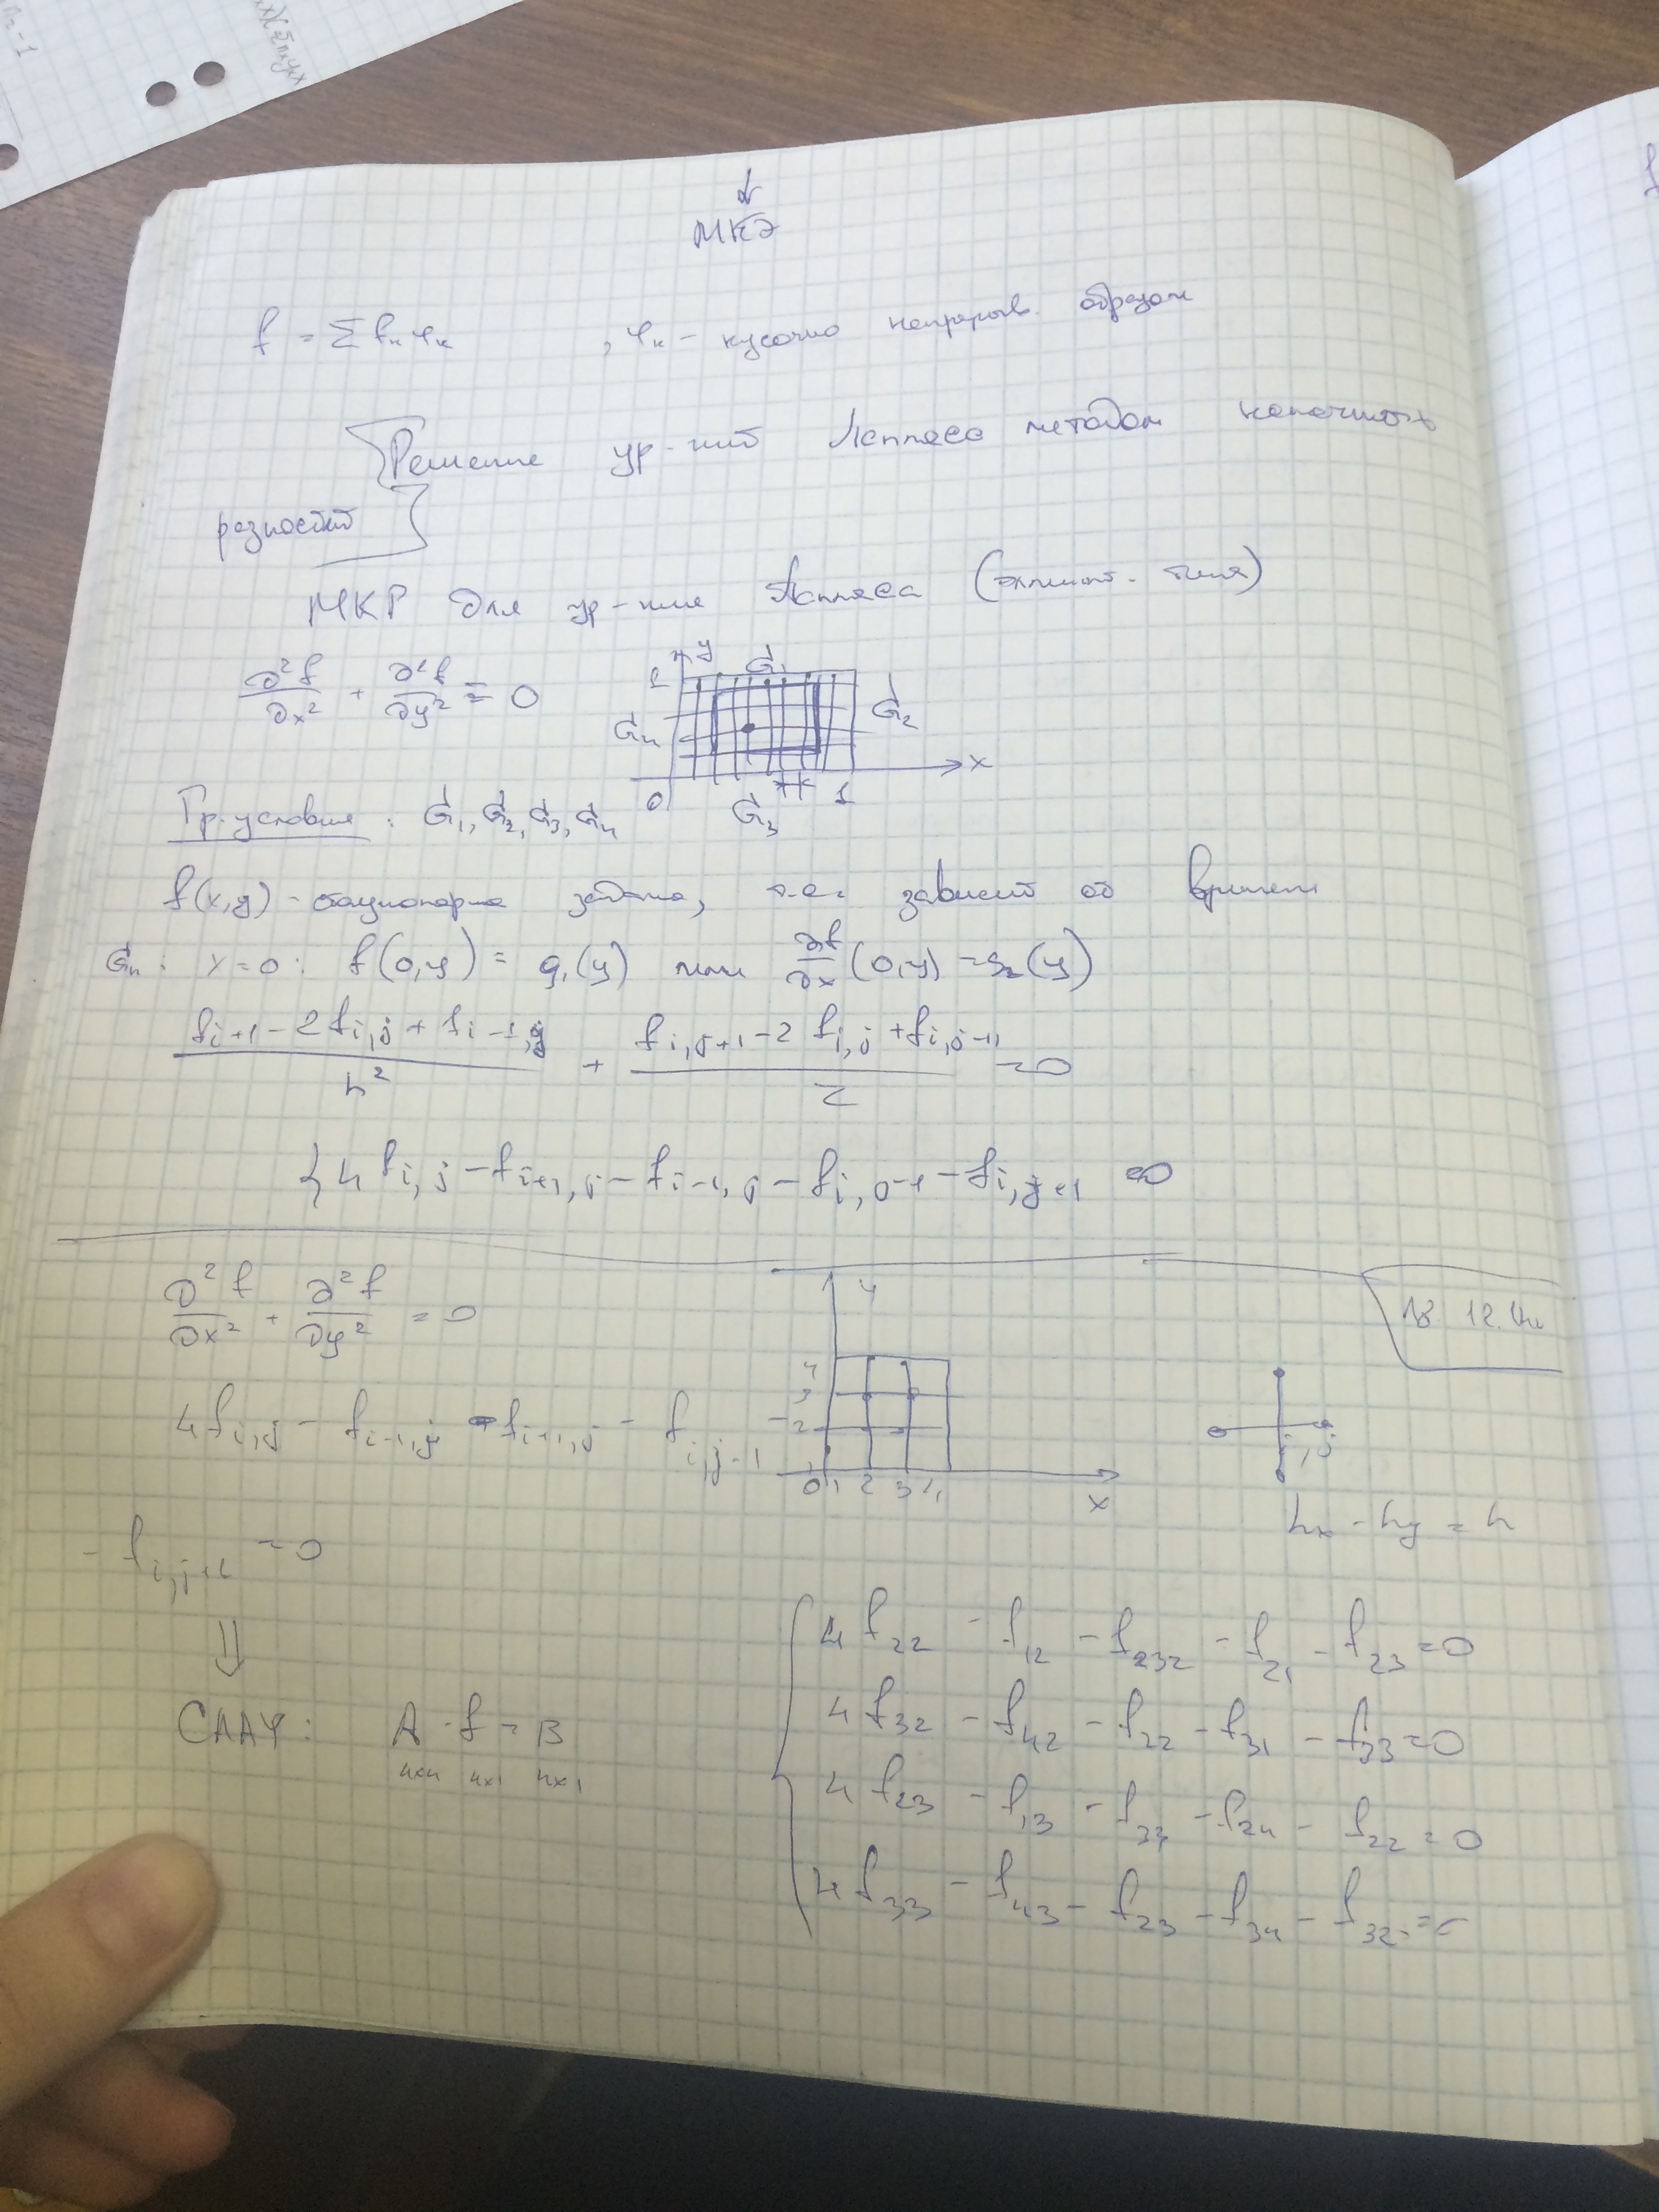 МКЭ
f = Σ fₖ φₖ , φₖ – кусочно непрерыв. образом
Решение ур-ний Лапласа методом конечных
разностей
МКР для ур-ние Лапласа (эллипт. типа)
∂²f/∂x² + ∂²f/∂y² = 0
y
1 G₁
G₄ G₂
x
0 G₃ 1
Гр. условия: G₁, G₂, G₃, G₄
f(x,y) – стационарна задача, т.е. зависит от времени
G₄: x=0: f(0,y) = g₁(y) или ∂f/∂x (0,y) = g₂(y)
(f i+1 – 2 f i,j + f i–1,j)/h² + (f i,j+1 – 2 f i,j + f i,j–1)/τ = 0
{ 4 f i,j – f i+1,j – f i–1,j – f i,j–1 – f i,j+1 = 0
∂²f/∂x² + ∂²f/∂y² = 0
y
4
3
2
1
0 1 2 3 4
x
4 f i,j – f i–1,j – f i+1,j – f i,j–1 –
i, j
hx = hy = h
– f i,j+1 = 0
⇓
СЛАУ: A · f = B
4x4 4x1 4x1
4 f₂₂ – f₁₂ – f₃₂ – f₂₁ – f₂₃ = 0
4 f₃₂ – f₄₂ – f₂₂ – f₃₁ – f₃₃ = 0
4 f₂₃ – f₁₃ – f₃₃ – f₂₄ – f₂₂ = 0
4 f₃₃ – f₄₃ – f₂₃ – f₃₄ – f₃₂ = 0